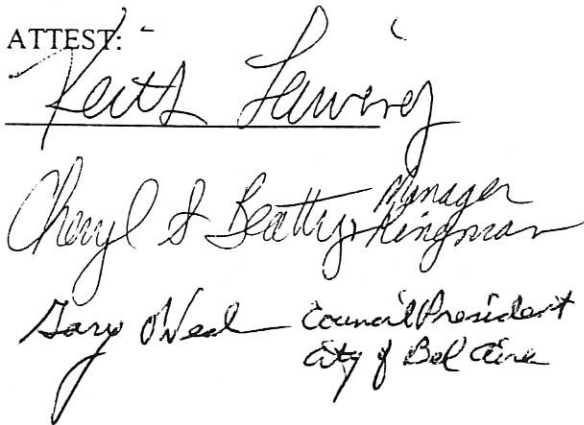 ATTEST:
Keith Lawing
Cheryl S Beatty, Manager
Kingman
Gary O'Neal Council President
City of Bel Aire